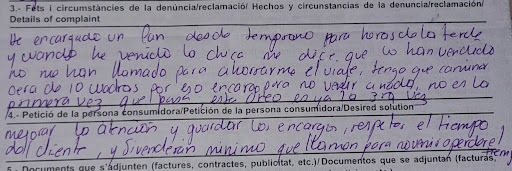 3.- Fets i circumstàncies de la denúncia/reclamació/ Hechos y circunstancias de la denuncia/reclamación/
Details of complaint
He encargado un Pan desde temprano para horas de la tarde
y cuando he venido la chica me dice que lo han vendido
no me han llamado para ahorrarme el viaje, tengo que caminar
cerca de 10 cuadras por eso encargo para no venir a nada, no es la
primera vez que pasa, este creo es ya la 3ra vez
4.- Petició de la persona consumidora/Petición de la persona consumidora/Desired solution
mejorar la atención y guardar los encargos, respetar el tiempo
del cliente, y si venderan minimo que llamen para no venir a perder el
tiem
5.- Documents que s'adjunten (factures, contractes, publicitat, etc.)/ Documentos que se adjuntan (facturas,